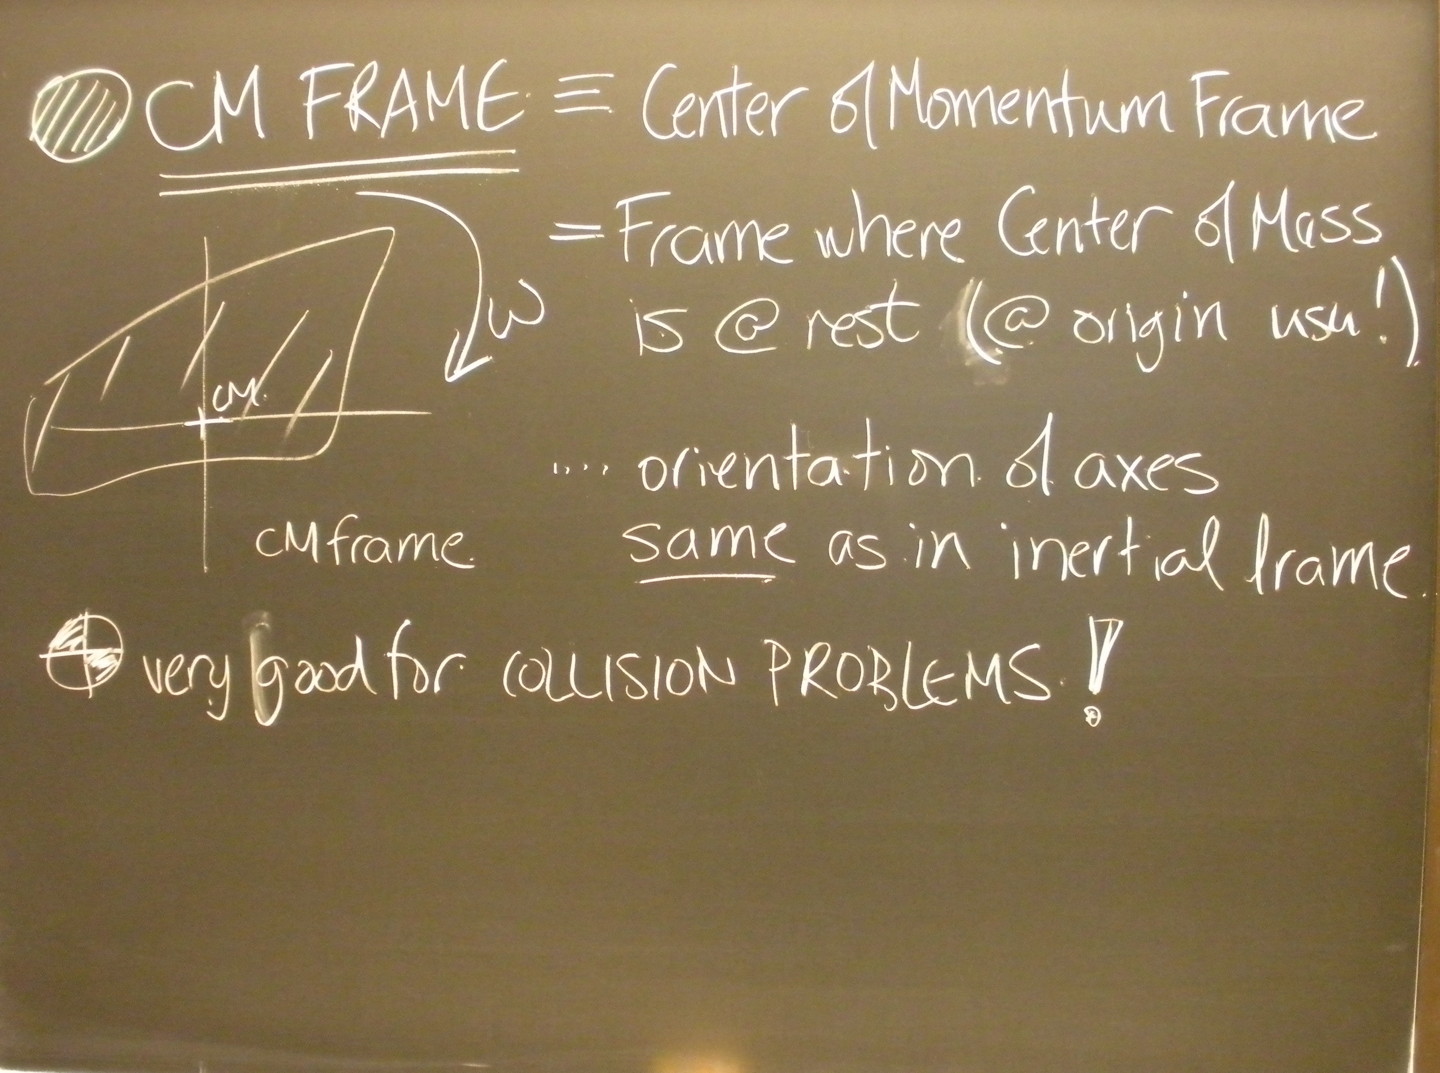 CM FRAME ≡ Center of Momentum Frame
= Frame where Center of Mass
is @ rest (@ origin usu!)
ω
CM
.... orientation of axes
same as in inertial frame.
CM frame
very good for COLLISION PROBLEMS!